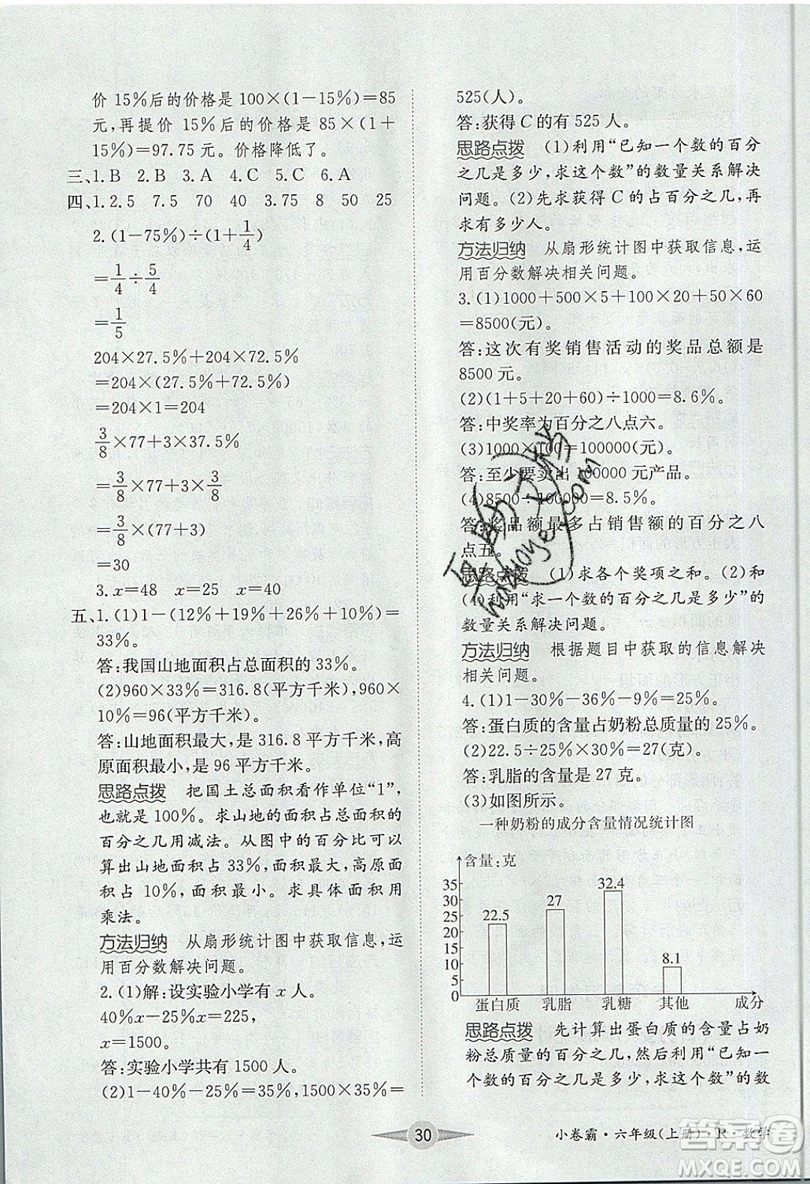 价 15%后的价格是 100×(1－15%)＝85
元,再提价 15%后的价格是 85×(1＋
15%)＝97.75 元。价格降低了。
三、1. B 2. B 3. A 4. C 5. C 6. A
四、1. 2.5 7.5 70 40 3.75 8 50 25
2. (1－75%)÷(1＋1/4)
＝1/4÷5/4
＝1/5
204×27.5%＋204×72.5%
＝204×(27.5%＋72.5%)
＝204×1＝204
3/8×77＋3×37.5%
＝3/8×77＋3×3/8
＝3/8×(77＋3)
＝30
3. x＝48 x＝25 x＝40
五、1. (1)1－(12%＋19%＋26%＋10%)＝
33%。
答:我国山地面积占总面积的 33%。
(2)960×33%＝316.8(平方千米),960×
10%＝96(平方千米)。
答:山地面积最大,是 316.8 平方千米,高
原面积最小,是 96 平方千米。
思路点拨 把国土总面积看作单位“1”,
也就是 100%。求山地的面积占总面积的
百分之几用减法。从图中的百分比可以
算出山地面积占 33%,面积最大,高原面积
占 10%,面积最小。求具体面积用
乘法。
方法归纳 从扇形统计图中获取信息,运
用百分数解决问题。
2. (1)解:设实验小学有 x 人。
40%x－25%x＝225,
x＝1500。
答:实验小学共有 1500 人。
(2)1－40%－25%＝35%,1500×35%＝
525(人)。
答:获得 C 的有 525 人。
思路点拨 (1)利用“已知一个数的百分
之几是多少,求这个数”的数量关系解决
问题。(2)先求获得 C 的占百分之几,再
求有多少人。
方法归纳 从扇形统计图中获取信息,运
用百分数解决相关问题。
3. (1)1000＋500×5＋100×20＋50×60
＝8500(元)。
答:这次有奖销售活动的奖品总额是
8500 元。
(2)(1＋5＋20＋60)÷1000＝8.6%。
答:中奖率为百分之八点六。
(3)1000×100＝100000(元)。
答:至少要卖出 100000 元产品。
(4)8500÷100000＝8.5%。
答:奖品额最多占销售额的百分之八
点五。
思路点拨 (1)求各个奖项之和。(2)和
(4)利用“求一个数的百分之几是多少”的
数量关系解决问题。
方法归纳 根据题目中获取的信息解决
相关问题。
4. (1)1－30%－36%－9%＝25%。
答:蛋白质的含量占奶粉总质量的 25%。
(2)22.5÷25%×30%＝27(克)。
答:乳脂的含量是 27 克。
(3)如图所示。
一种奶粉的成分含量情况统计图
含量:克
35
30
25
20
15
10
5
0
22.5
27
32.4
8.1
蛋白质 乳脂 乳糖 其他 成分
思路点拨 先计算出蛋白质的含量占奶
粉总质量的百分之几,然后利用“已知一
个数的百分之几是多少,求这个数”的数
30
小卷霸·六年级(上册)·R·数学
答案圈
MXQE.COM